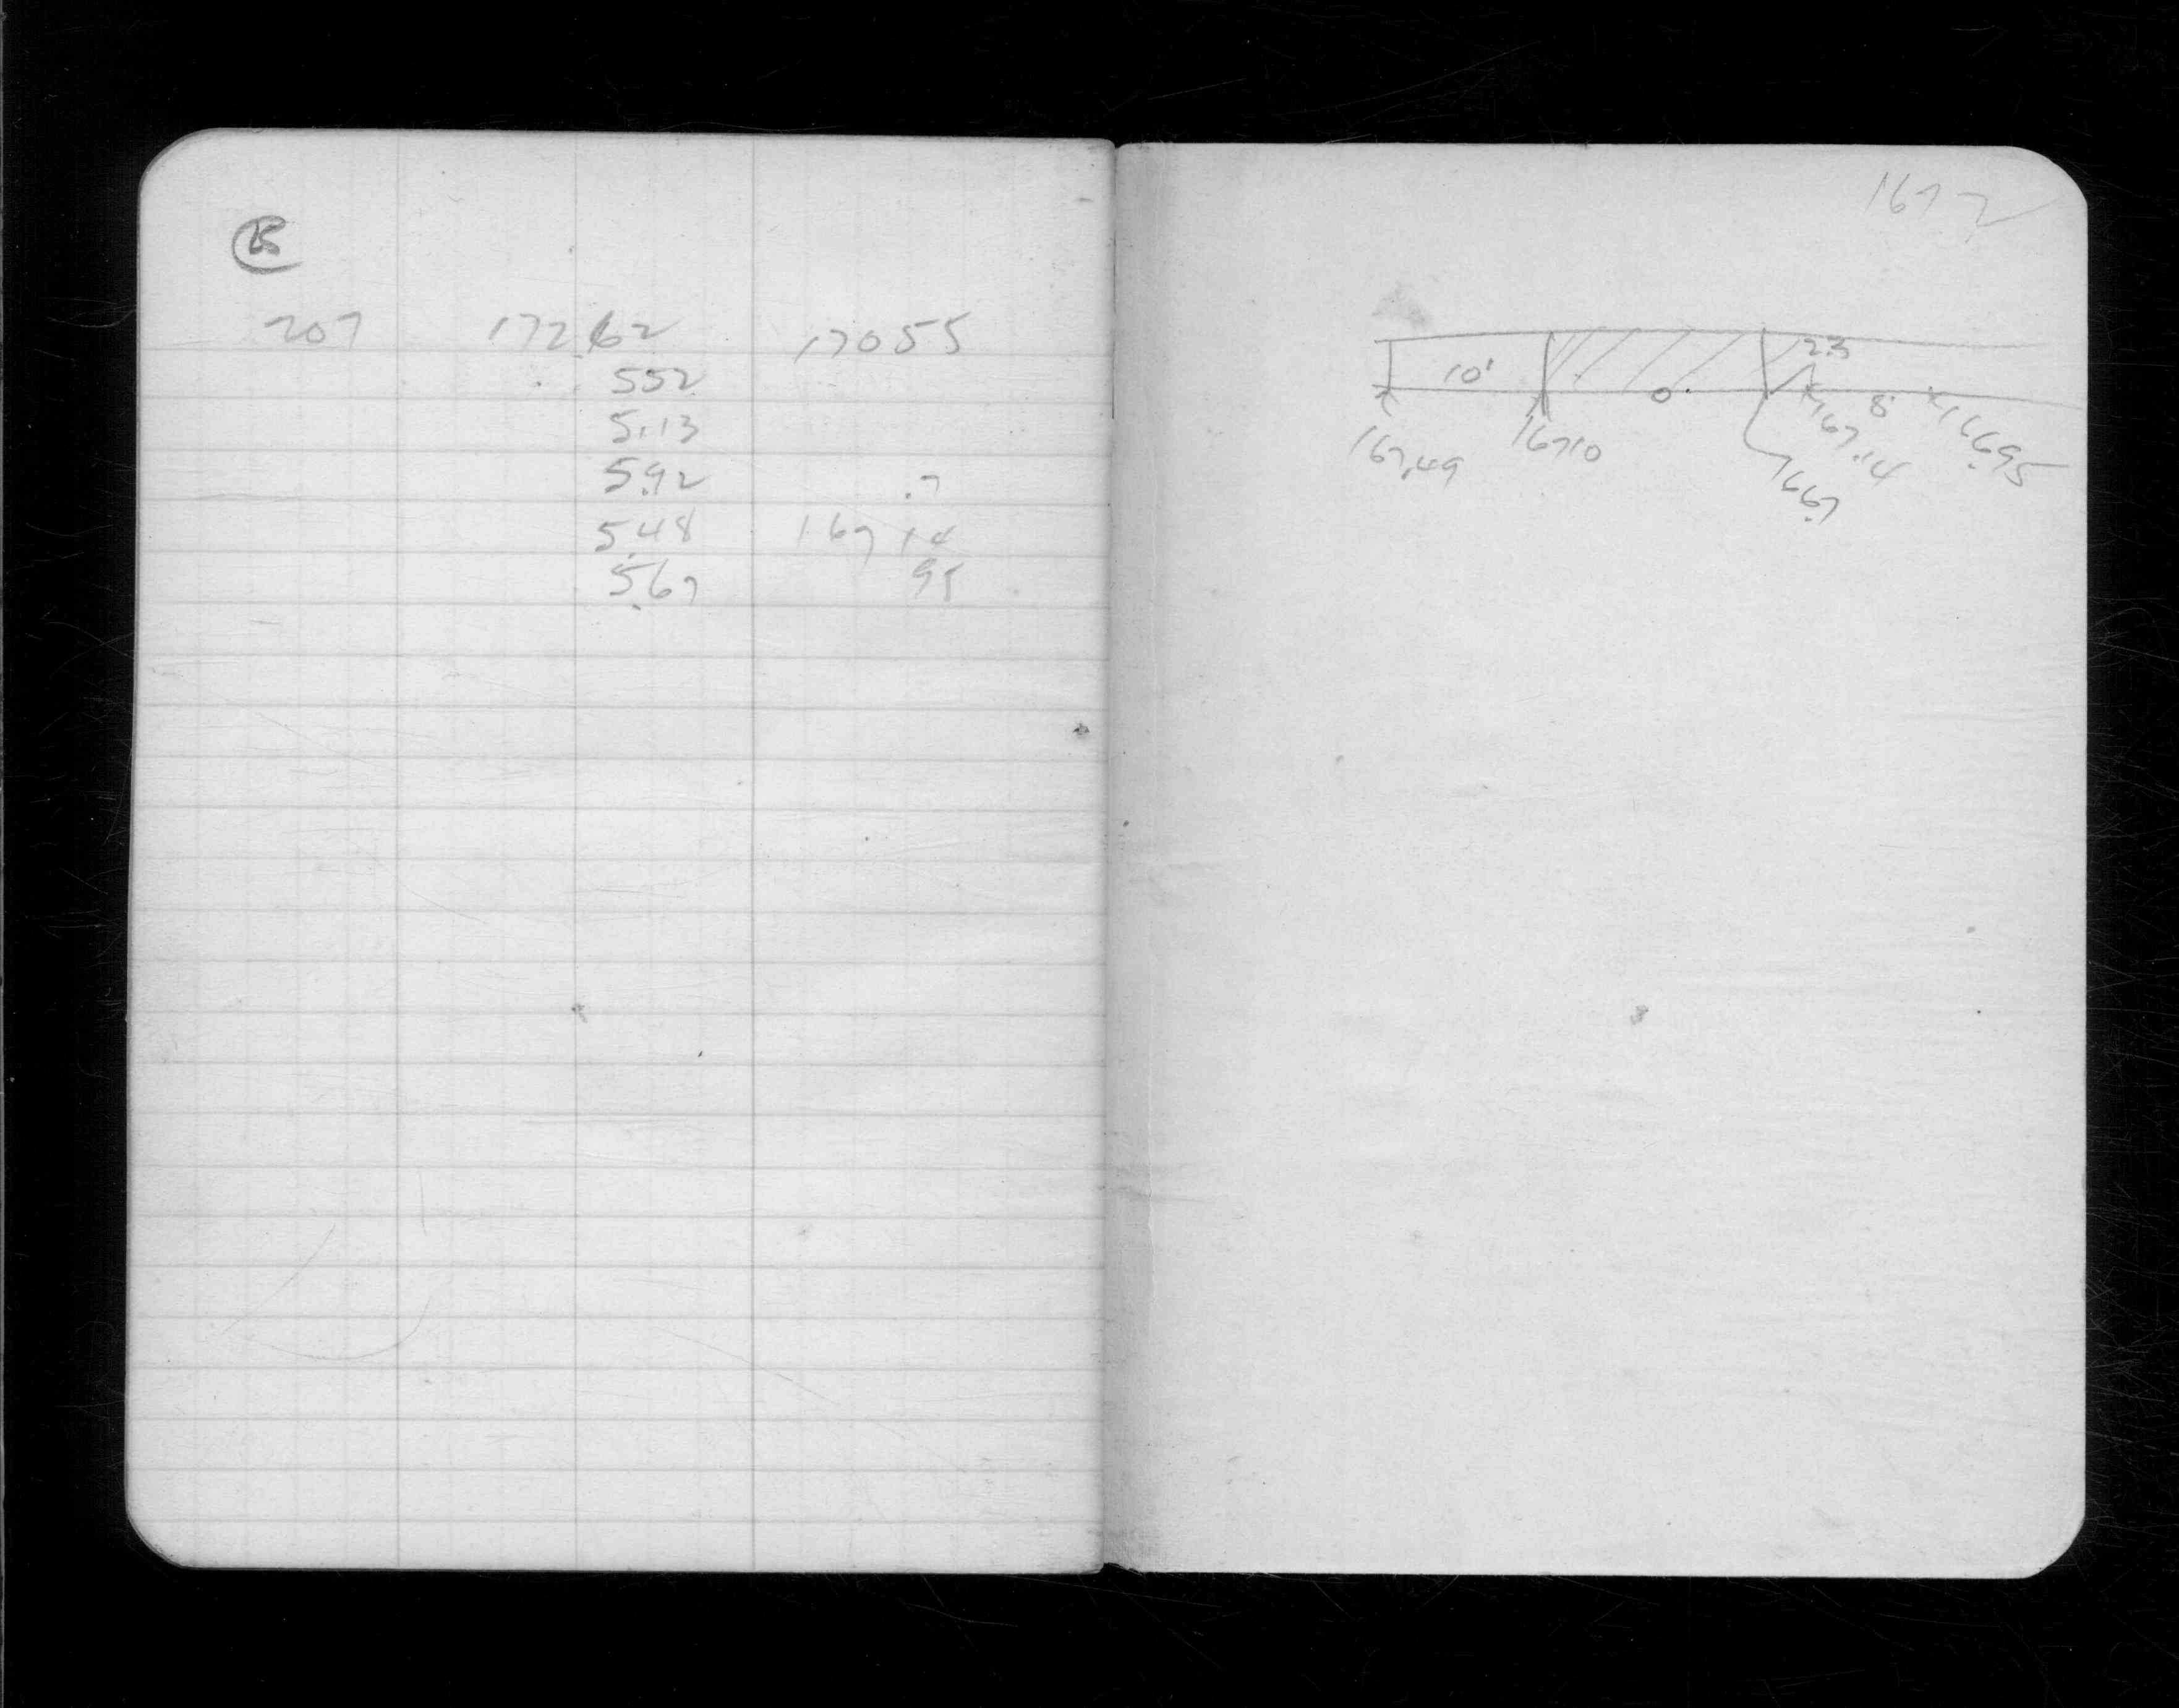 207 172 62 170 55
552
5.13
5.92 .7
5.48 167 14
5.67 95
1672
2.3
10'
0
8
167.49 16710 167.14 166.95
166.7